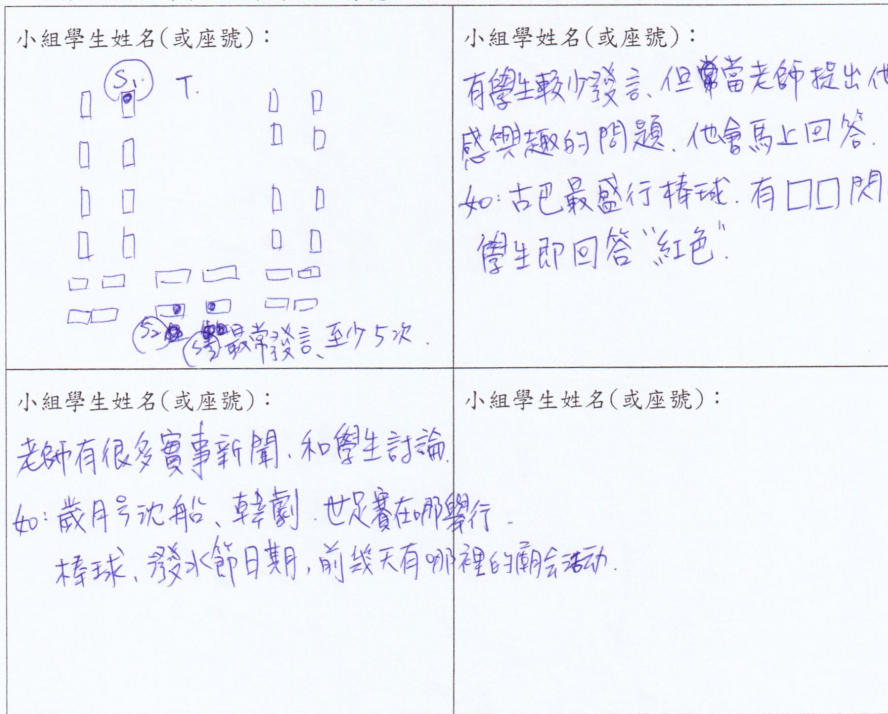 小組學生姓名(或座號)：
S1. T.
S2 S3 最常發言、至少5次.
小組學姓名(或座號)：
有學生較少發言、但當老師提出他
感興趣的問題.他會馬上回答.
如:古巴最盛行棒球.有□□閃
學生即回答"紅色".
小組學生姓名(或座號)：
老師有很多實事新聞、和學生討論.
如:歲月号沈船、韓劇.世足賽在哪舉行.
棒球、發水節日期,前幾天有哪裡的廟会活动.
小組學生姓名(或座號)：